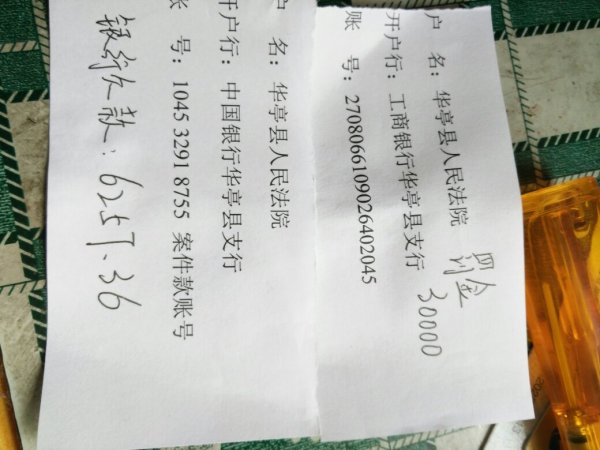 户 名：华亭县人民法院
开户行：工商银行华亭县支行
账 号：2708066109026402045
罚金
30000
户 名：华亭县人民法院
开户行：中国银行华亭县支行
账 号：1045 3291 8755 案件款账号
银行欠款：6257.36